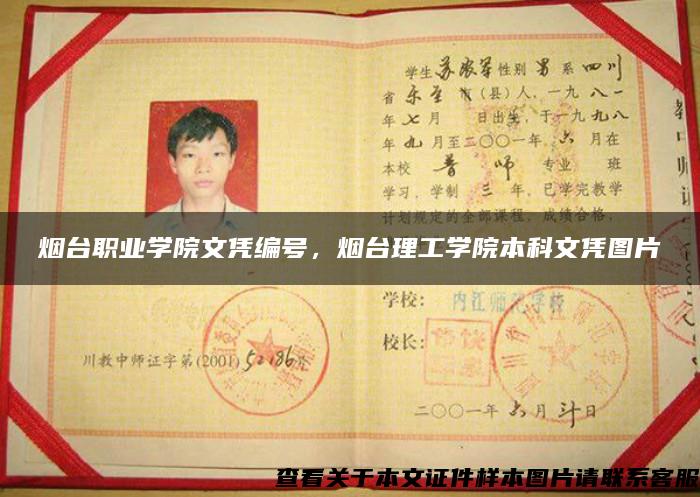 学生苏发军性别男系四川
省乐至市(县)人，一九八一
年七月 日出生，于一九九八
年九月至二〇〇一年六月在
本校普师专业 班
学习，学制三年，已学完教学
计划规定的全部课程，成绩合格，
烟台职业学院文凭编号，烟台理工学院本科文凭图片
学校：内江师范学校
校长：
川教中师证字第(2001)52186号
二〇〇一年六月 日
查看关于本文证件样本图片请联系客服